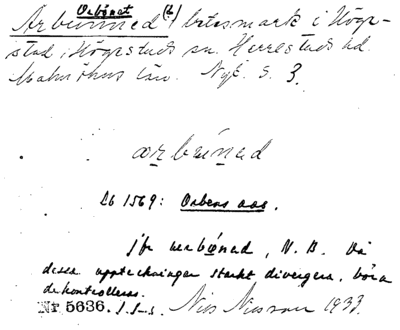 Orbönat
Arbönned (b) betesmark i Högestad, Högestads sn. Herrestads hd.
Malmöhus län. Nyt. s. 3.
ærbǿnad
Lb 1569: Orbens aas.
jfr ærbønad, N. B. Då
dessa uppteckningar starkt divergera, böra
de kontrolleras.
Nr. 5636. Nils Nilsson 1933.